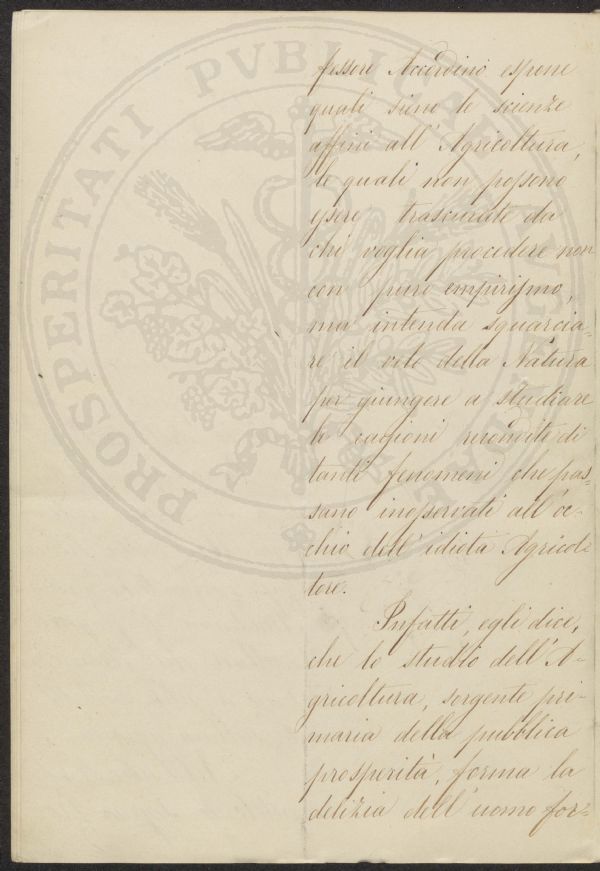 fessore Accordino espone
quali siene le scienze
affini all'Agricoltura,
le quali non possono
essere trascurate da
chi voglia procedere non
con puro empirismo,
ma intenda squarcia=
re il velo della Natura
per giungere a studiare
le cagioni recondite di
tanti fenomeni che pas=
sano inosservati all'oc-
chio dell'idiota Agricol=
tore.
Infatti, egli dice,
che lo studio dell'A-
gricoltura, sorgente pri-
maria della pubblica
prosperità, forma la
delizia dell'uomo for=
PROSPERITATI PVBLICAE